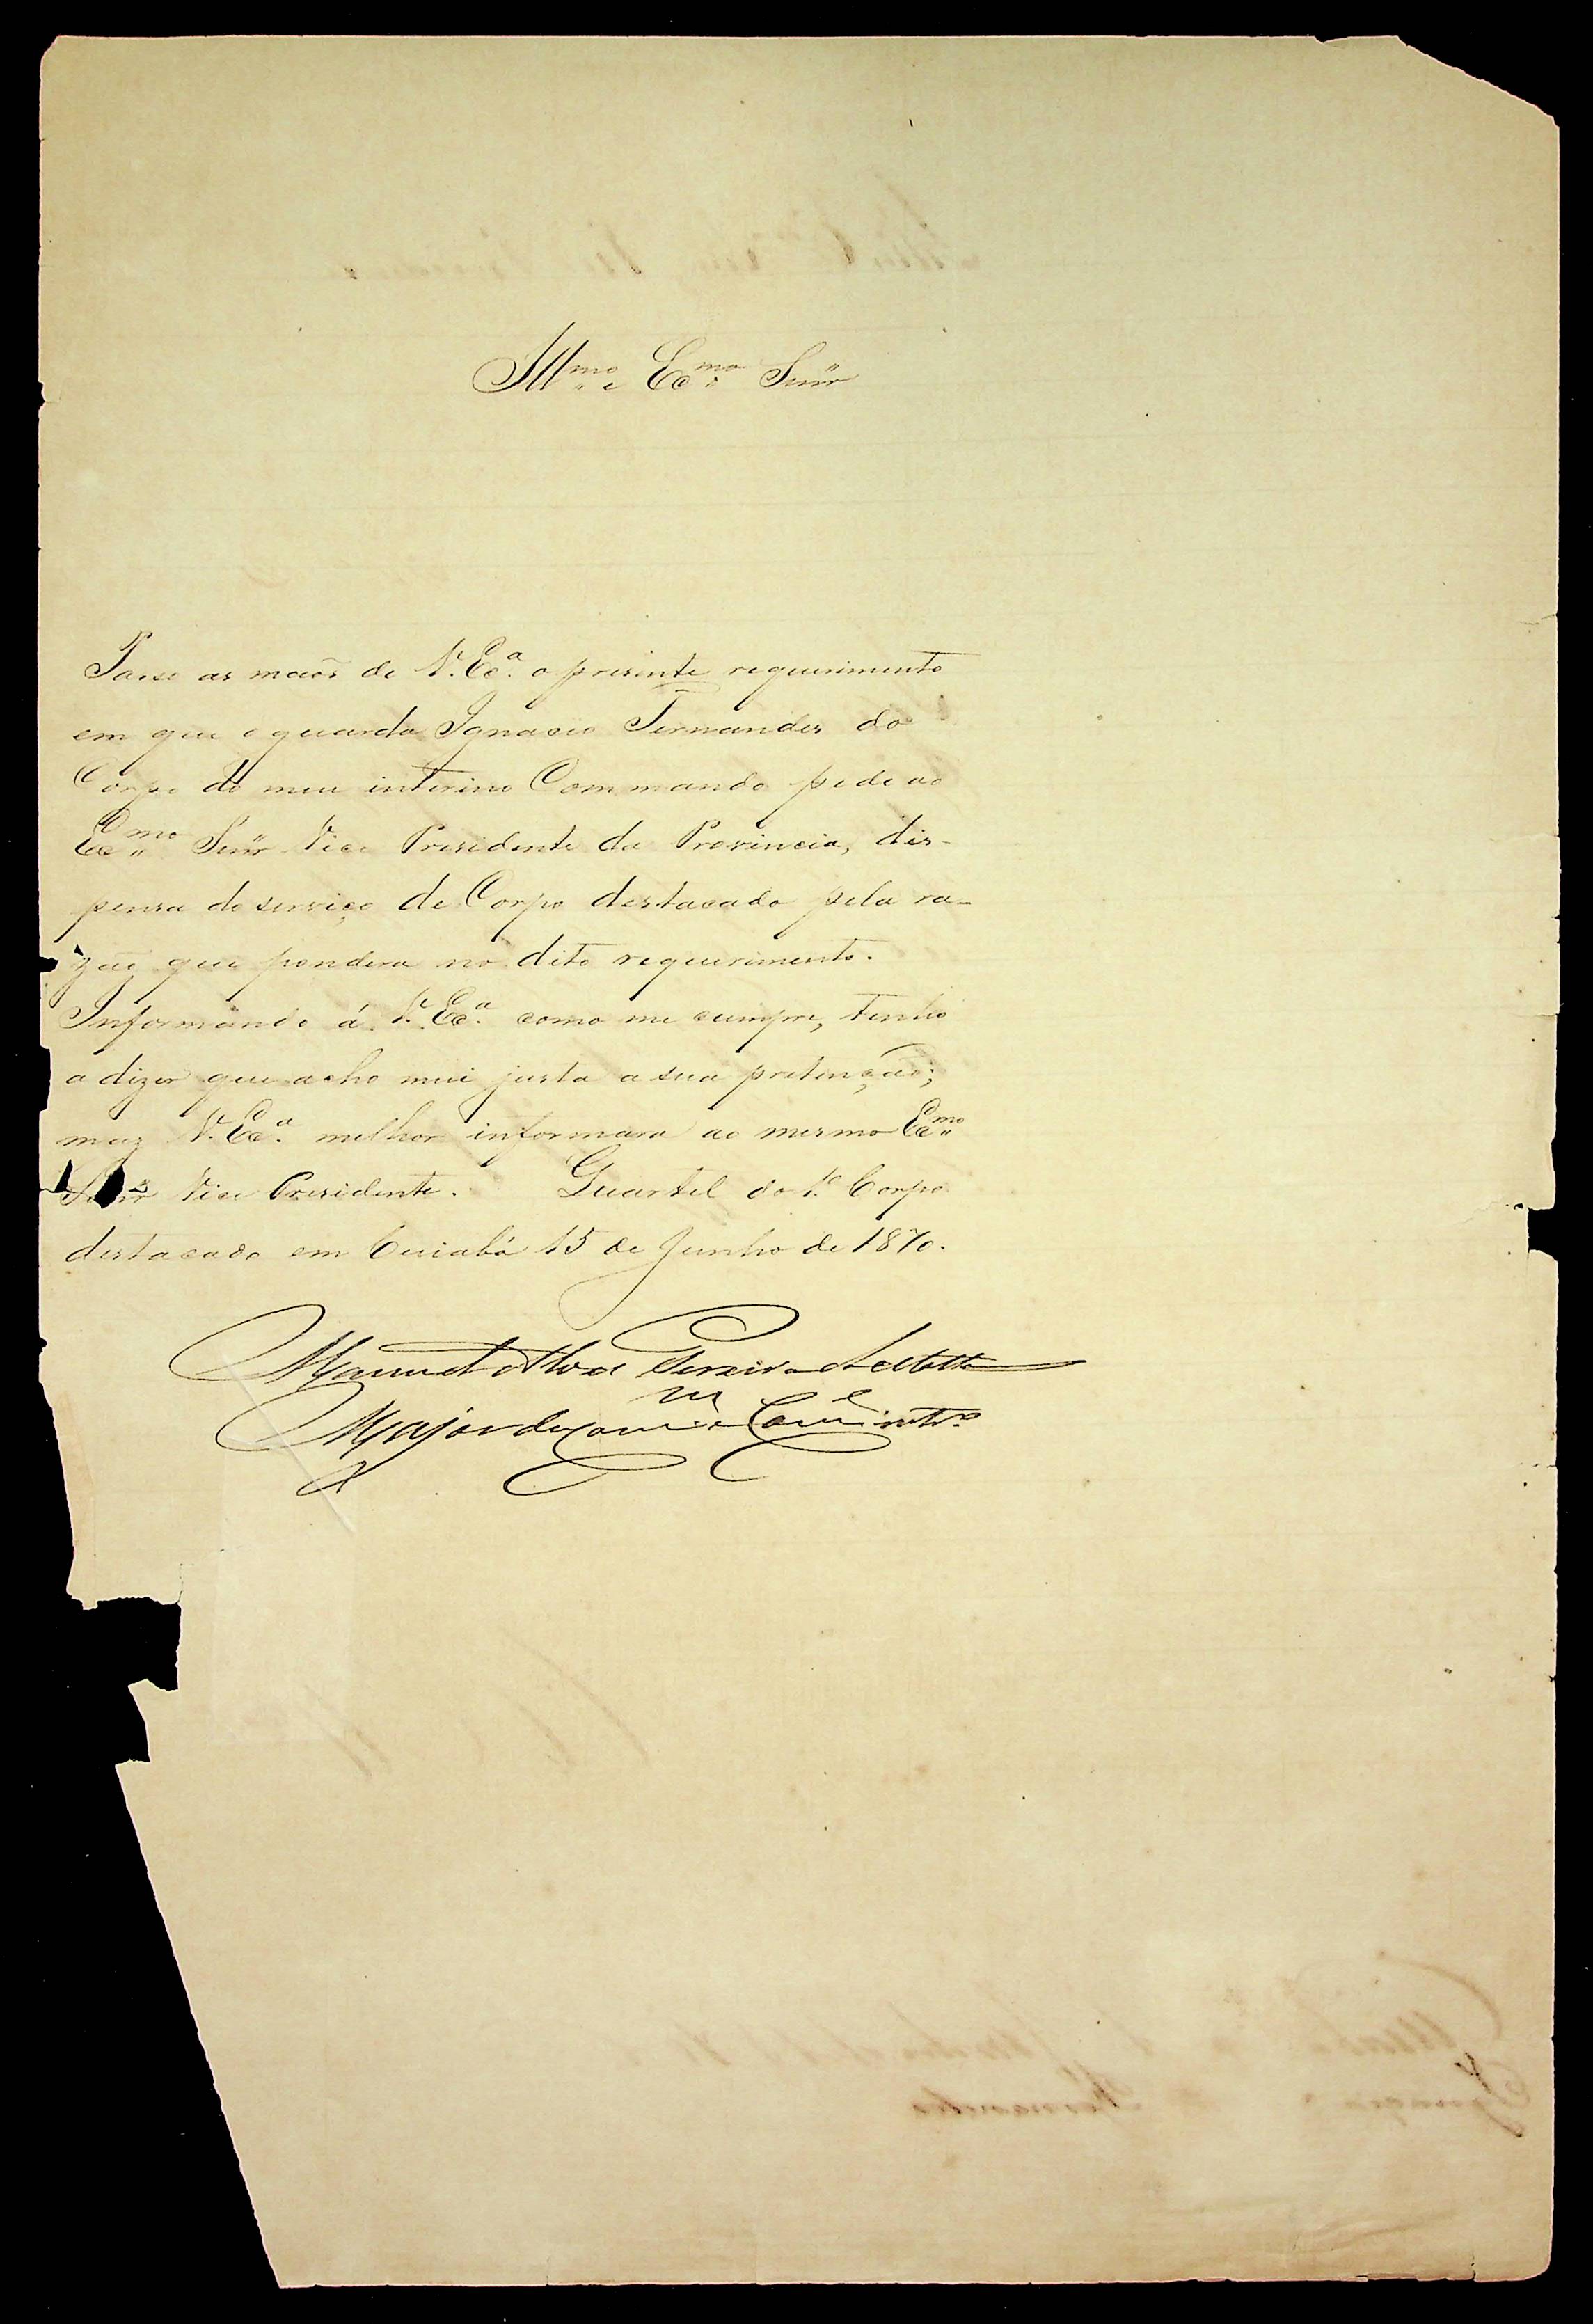 Illmo. e Exmo. Senr
Passo as maõs de V. Exa. o presente requerimento
em que o guarda Ignacio Fernandes do
Corpo do meu interino Commando pede ao
Exmo Senr Vice Presidente da Provincia, dis-
pensa do serviço de Corpo destacado pela ra-
zão que pondera no dito requerimento.
Informando á V. Exa. como me cumpre, tenho
a dizer que acho mui justa a sua pretenção;
maz V. Exa. melhor informara ao mesmo Exmo
Senr Vice Presidente. Quartel do 1º Corpo
destacado em Cuiabá 15 de Junho de 1870.
Manuel Alves Pereira
Major